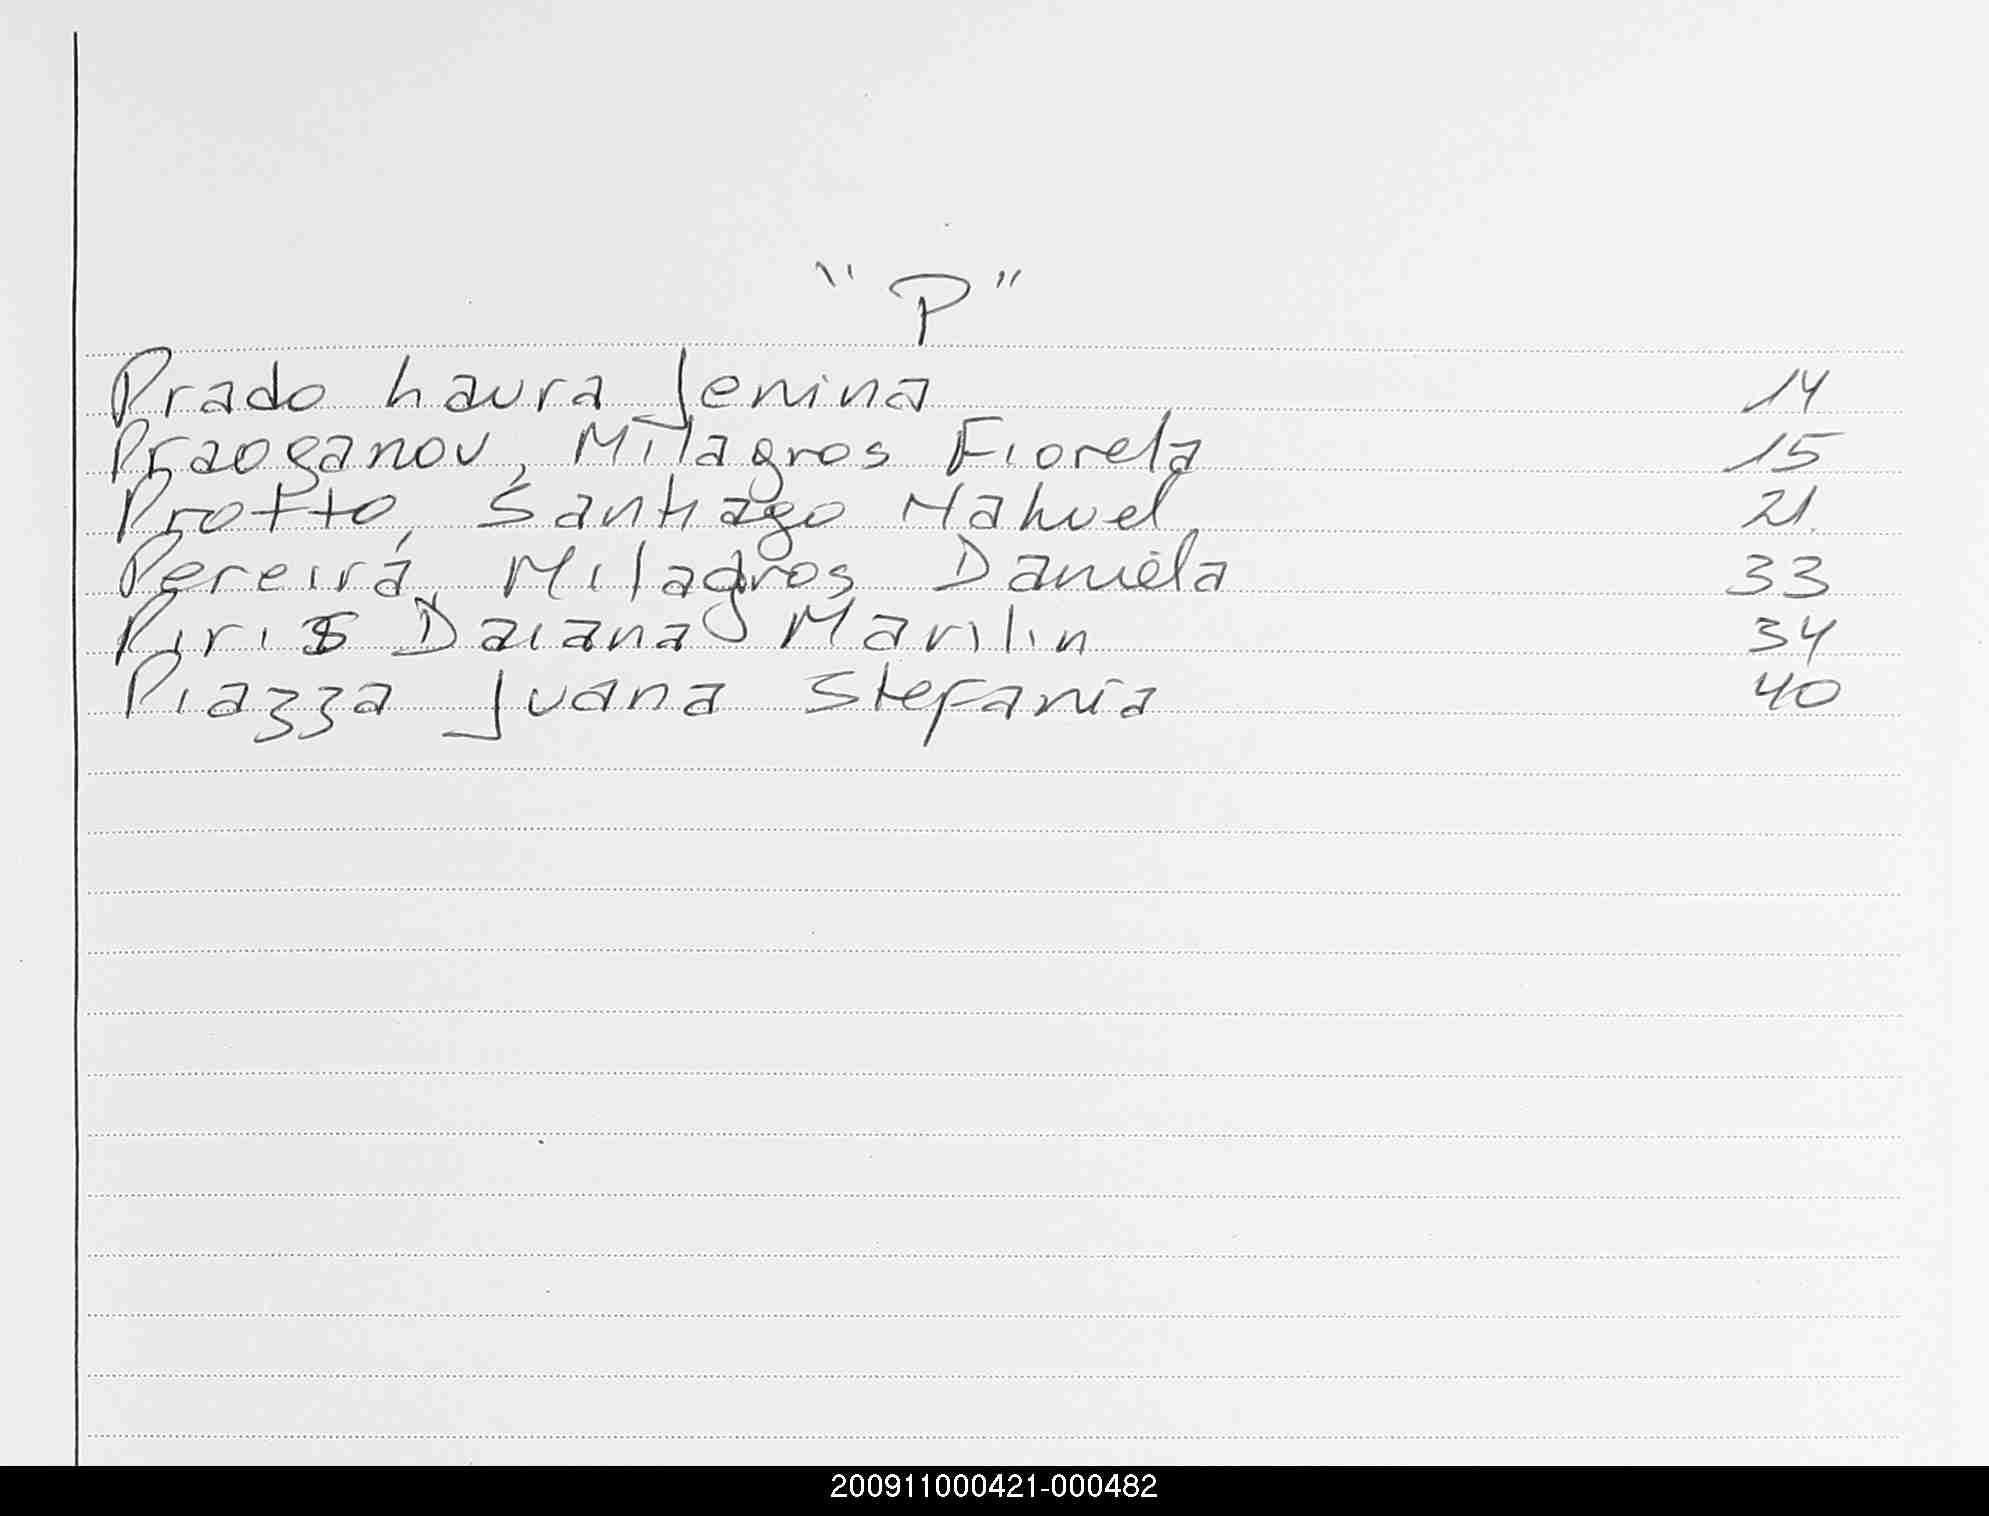 "P"
Prado Laura Jenina 14
Praoganov, Milagros Fiorela 15
Protto, Santiago Nahuel 21
Pereira, Milagros Daniela 33
Piris Daiana Marilin 34
Piazza Juana Stefania 40
200911000421-000482